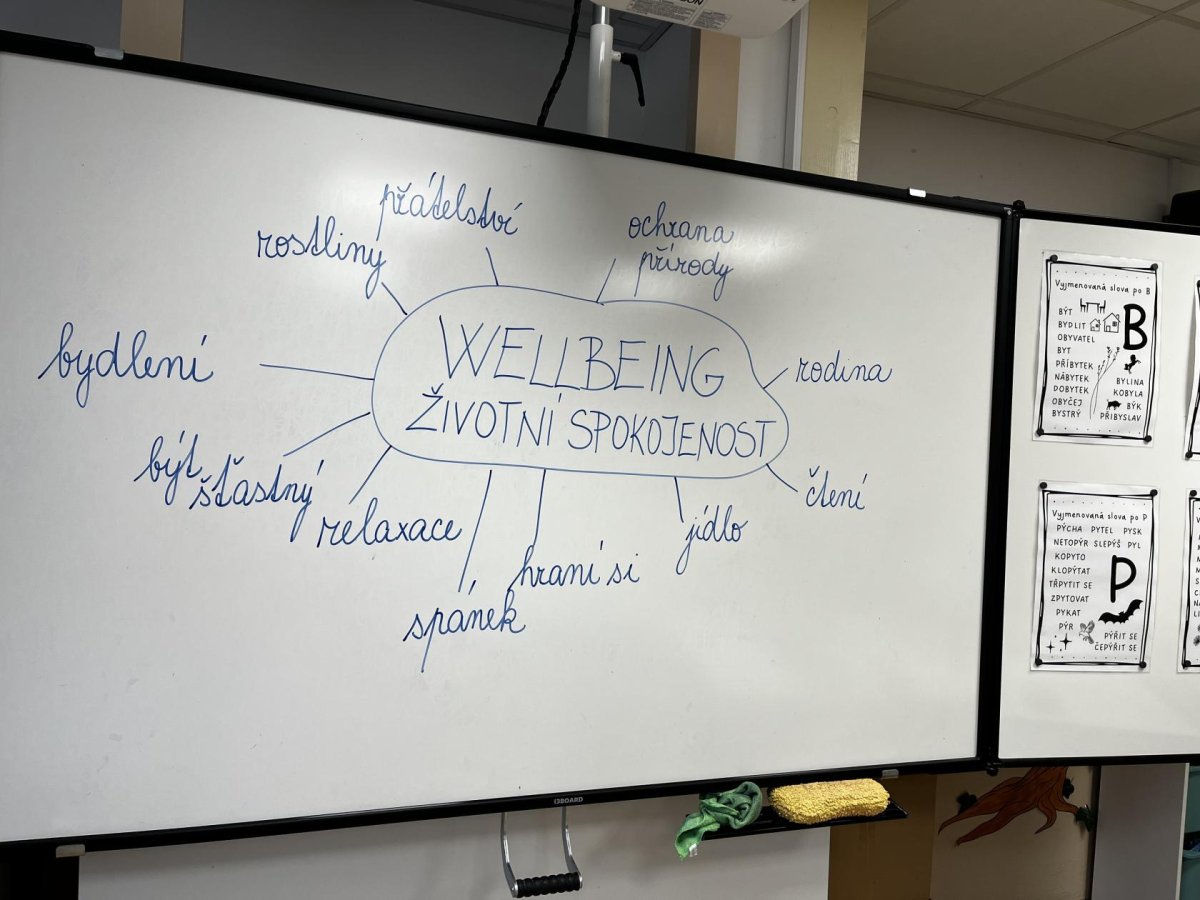 přátelství
rostliny
ochrana
přírody
bydlení
WELLBEING
ŽIVOTNÍ SPOKOJENOST
rodina
být
šťastný
relaxace
spánek
hraní si
jídlo
čtení
i3BOARD
Vyjmenovaná slova po B
B
BÝT
BYDLIT
OBYVATEL
BYT
PŘÍBYTEK
NÁBYTEK
DOBYTEK
OBYČEJ
BYSTRÝ
BYLINA
KOBYLA
BÝK
PŘIBYSLAV
Vyjmenovaná slova po P
PÝCHA PYTEL PYSK
NETOPÝR SLEPÝŠ PYL
KOPYTO
KLOPÝTAT
TŘPYTIT SE
ZPYTOVAT
PYKAT
PÝR
P
PÝŘIT SE
ČEPÝŘIT SE